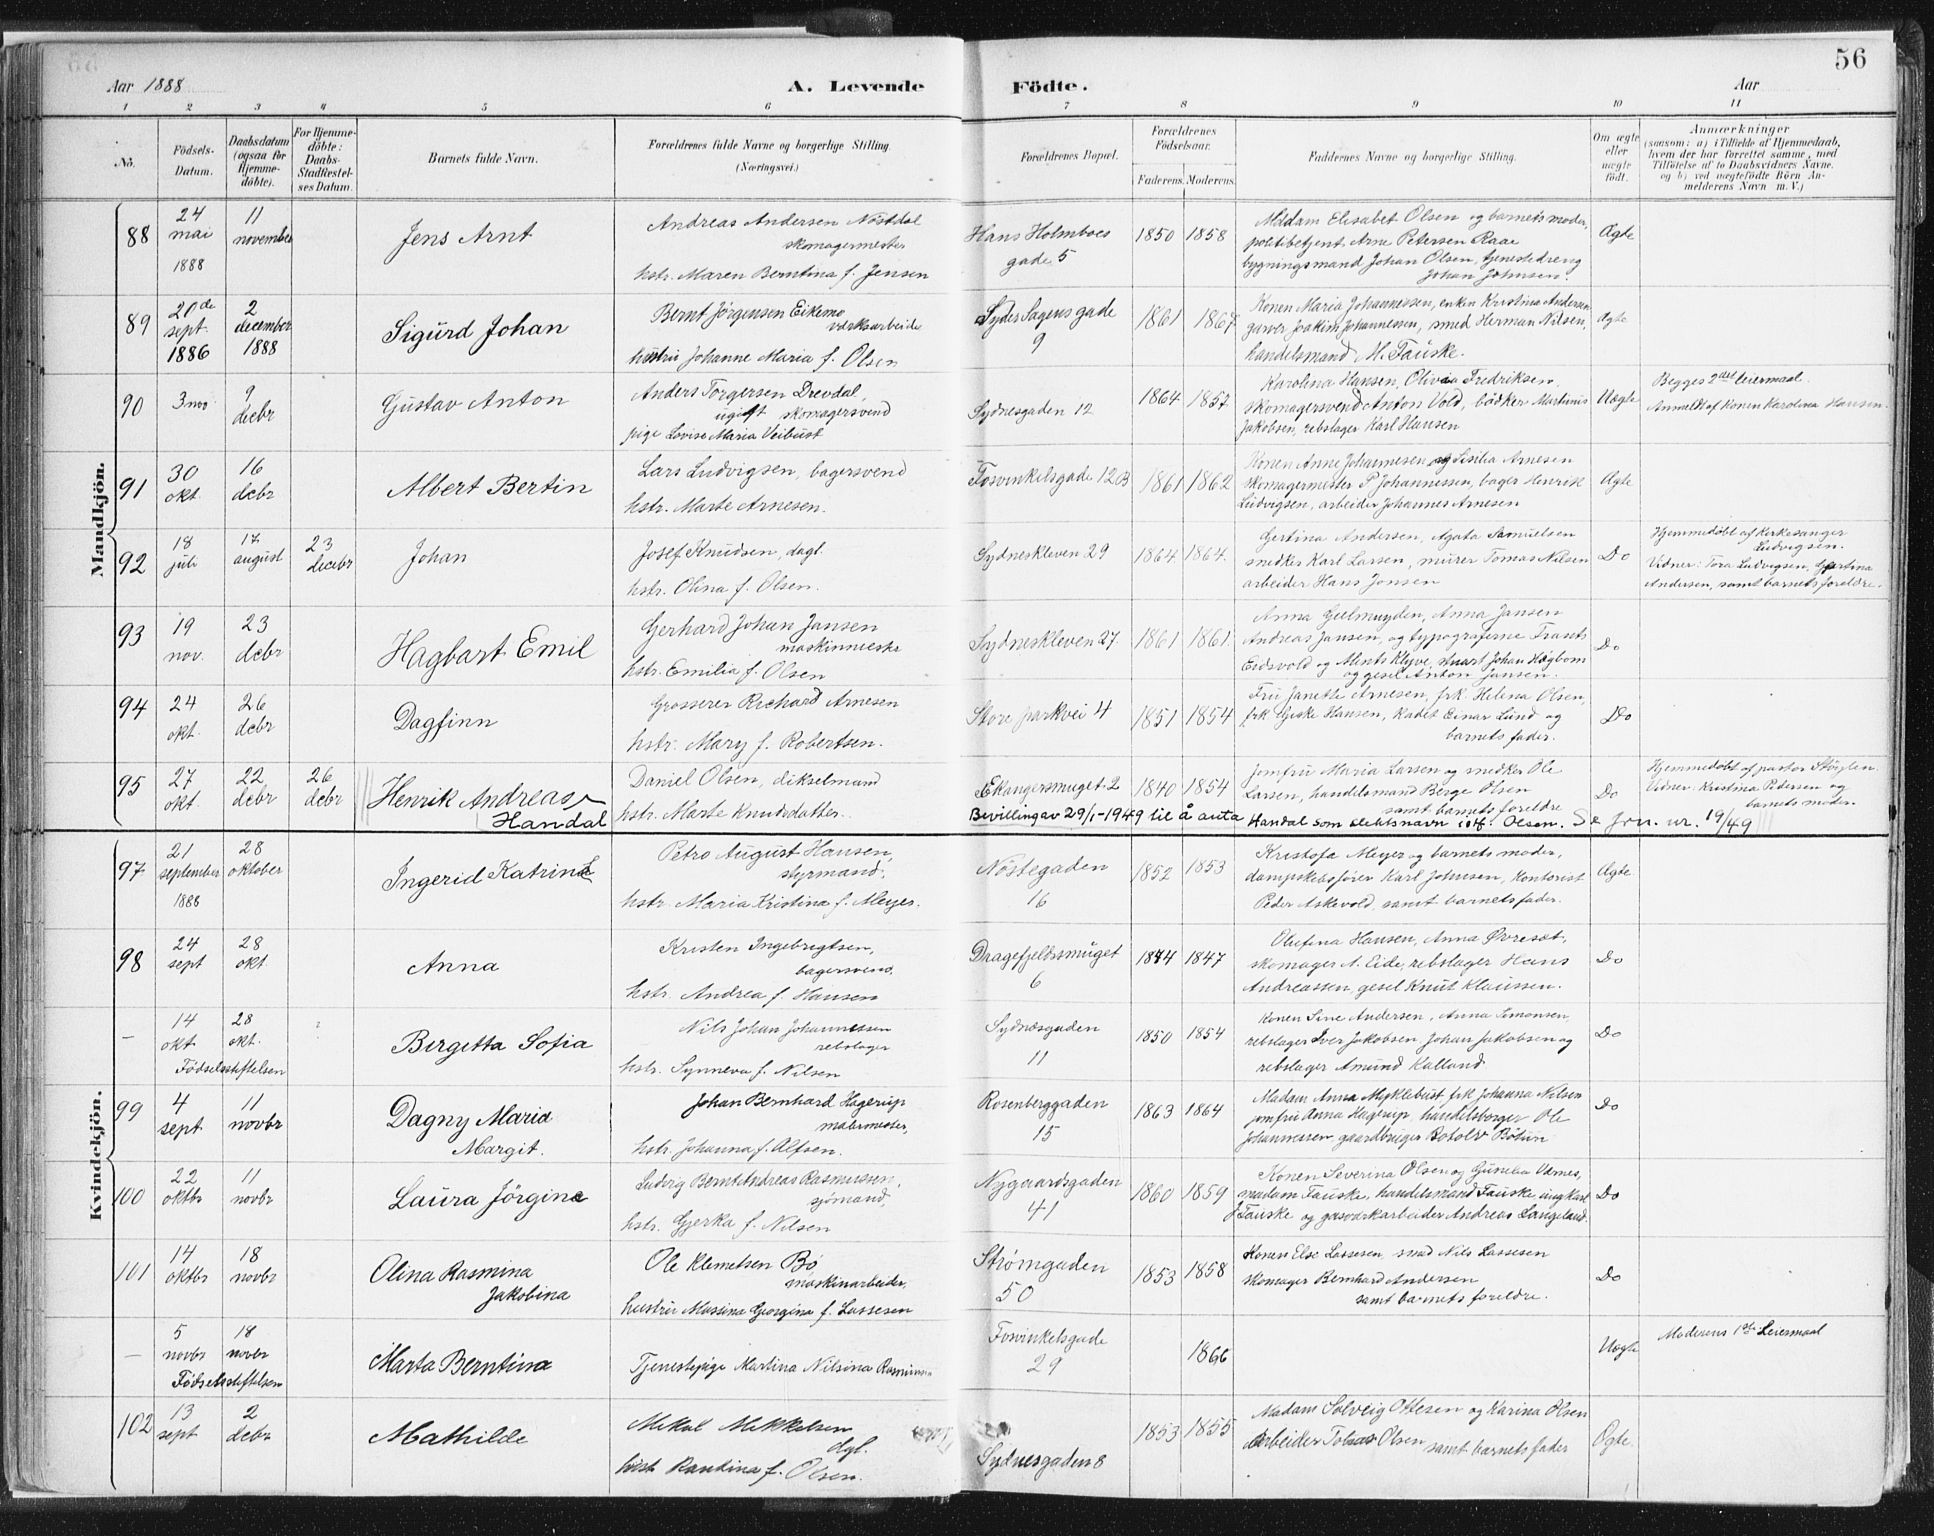 56
Aar 1888
A. Levende
Födte.
Aar
1 2 3 4 5 6 7 8 9 10 11
No.
Födsels-
Datum.
Daabsdatum
(ogsaa for
Hjemme-
döbte).
For Hjemme-
döbte:
Daabs-
Stadfæstel-
ses Datum.
Barnets fulde Navn.
Forældrenes fulde Navne og borgerlige Stilling.
(Næringsvei.)
Forældrenes Bopæl.
Forældrenes
Födselsaar.
Faderens. Moderens.
Faddernes Navne og borgerlige Stilling.
Om ægte
eller
uægte
födt.
Anmærkninger
(saasom: a) i Tilfælde af Hjemmedaab,
hvem der har forrettet samme, med
Tilföielse af to Daabsvidners Navne,
og b) ved uægtefödte Börn An-
melderens Navn m. V.)
Mandkjön.
88
24
mai
1888
11
november
Jens Arnt
Andreas Andersen Nøstdal
skomagermester
hstr. Maren Berntina f. Jensen
Hans Holmboes
gade 5
1850 1858
Madam Elisabet Olsen og barnets moder,
politibetjent Arne Petersen Raae
bygningsmand Johan Olsen, tjenestedreng
Johan Johnsen.
Ægte
89
20de
sept.
1886
2
december
1888
Sigurd Johan
Bernt Jørgensen Eikemo
værksarbeide
hustru Johanne Maria f. Olsen
Syder Sagens gade
9
1861 1867
Konen Maria Johannessen, enken Kristina Andersen
garver Joakim Johannessen, smed Herman Nilsen,
handelsmand M. Fauske.
Ægte
90
3 nov
9
decbr
Gustav Anton
Anders Torgersen Drevdal,
ugift skomagersvend
pige Lovise Maria Veibust
Sydnesgaden 12
1864 1857
Karolina Hansen, Olivia Fredriksen,
skomagersvend Anton Vold, bødker Martinus
Jakobsen, rebslager Karl Hansen
Uægte
Begges 2det leiermaal.
Anmeldt af Konen Karolina Hansen.
91
30
okt.
16
decbr
Albert Bertin
Lars Ludvigsen, bagersvend
hstr. Marte Arnesen.
Fosvinkelsgade 12B
1861 1862
Konen Anne Johannesen og Sisilia Arnesen
skomagermester P Johannessen, bager Henrik
Ludvigsen, arbeider Johannes Arnesen
Ægte
92
18
juli
17
august
23
decebr
Johan
Josef Knudsen, dagl.
hstr. Olina f. Olsen.
Sydneskleven 29
1864 1864.
Gertina Andersen, Agata Samuelsen
snedker Karl Larsen, murer Tomas Nilsen
arbeider Hans Jonsen
Do
Hjemmedøbt af Kirkesanger
Ludvigsen.
Vidner: Tora Ludvigsen, Gjertina
Andersen, samt barnets foreldre.
93
19
nov.
23
decbr
Hagbart Emil
Gerhard Johan Jansen
maskinmester
hstr. Emilia f. Olsen
Sydneskleven 27.
1861 1861.
Anna Gjelmuyden, Anna Jansen
Andreas Jansen, og typograferne Frants
Eidsvold og Ments Klyve, stuart Johan Høgbom
og gesel Anton Jansen.
Do
94
24
okt.
26
decbr
Dagfinn
Grosserer Richard Arnesen
hstr. Mary f. Robertsen.
Store parkvei 4
1851 1854
Fru Janette Arnesen, frk. Helena Olsen,
frk Giske Hansen, kadet Einar Lund og
barnets fader.
Do
95
27
okt.
22
decbr
26
decbr
Henrik Andreas
Handal
Daniel Olsen, dikselmand
hstr. Marte Knudsdatter.
Ekangersmuget 2
1840 1854
Jomfru Maria Larsen og snedker Ole
Larsen, handelsmand Berge Olsen
samt barnets foreldre
Do
Hjemmedøbt af pastor Støylen.
Vidner: Kristina Pedersen og
barnets moder.
Bevilling av 29/1-1949 til å anta Handal som slektsnavn istf. Olsen. Se Jrn. nr. 19/49
Kvindekjön.
97
21
september
1888
28
oktober
Ingerid Katrine
Petro August Hansen,
styrmand.
hstr. Maria Kristina f. Meyer.
Nøstegaden
16
1852 1853
Kristofa Meyer og barnets moder,
dampskibsfører Karl Johnsen, kontorist
Peder Askevold, samt barnets fader.
Ægte
98
24
sept
28
okt.
Anna
Kristen Ingebrigtsen,
bagersvend.
hstr. Andrea f. Hansen
Dragefjeldssmuget
6
1844 1847
Olufina Hansen, Anna Øvresæt,
skomager A. Eide, rebslager Hans
Andreassen, gesel Knut Klaussen.
Do
–
14
okt
28
okt.
Fødselsstiftelsen
Bergetta Sofia
Nils Johan Johannessen
rebslager
hstr. Synneva f. Nilsen
Sydnæsgaden
11
1850 1854
Konen Sine Andersen, Anna Simonsen
rebslager Iver Jakobsen, Johan Jakobsen og
rebslager Amund Kalland.
Do
99
4
sept
11
novbr
Dagny Maria
Margit.
Johan Bernhard Hagerup
malermester,
hstr. Johanna f. Alfsen.
Rosenberggaden
15
1863 1864
Madam Anna Myklebust frk Johanna Nilsen
jomfru Anna Hagerup, handelsborger Ole
Johannessen gaardbruger Botolv Bøtun
Do
100
22
oktbr
11
novbr
Laura Jörgine
Ludvig Bernt Andreas Rasmussen,
sjømand,
hstr. Gjerka f. Nilsen
Nygaardsgaden
41
1860 1859
Konen Severina Olsen og Gunelia Værnes,
madam Fauske, handelsmand Fauske, ung Karl
J Fauske og gasværkarbeider Andreas Langeland.
Do
101
14
oktbr
18
novbr
Olina Rasmina
Jakobina
Ole Klemetsen Bø
maskinarbeider,
hustru Massina Georgina f. Lassesen
Strømgaden
50
1853 1858
Konen Else Lassesen, smed Nils Lassesen
skomager Bernhard Andersen
samt barnets foreldre.
Do
–
5
novbr
18
novbr
Fødselsstiftelsen
Marta Berntina
Tjenestepige Martina Nilsina Rasmussen
Fosvinkelsgade
29
1866
Uægte
Moderens 1ste Leiermaal
102
13
sept
2
decbr
Mathilde
Mikal Mikkelsen
dgl.
hust Rantina f. Olsen.
Sydnesgaden 8
1853 1855
Madam Solveig Ottesen og Karina Olsen
Arbeider Tobias Olsen samt barnets fader
Ægte.